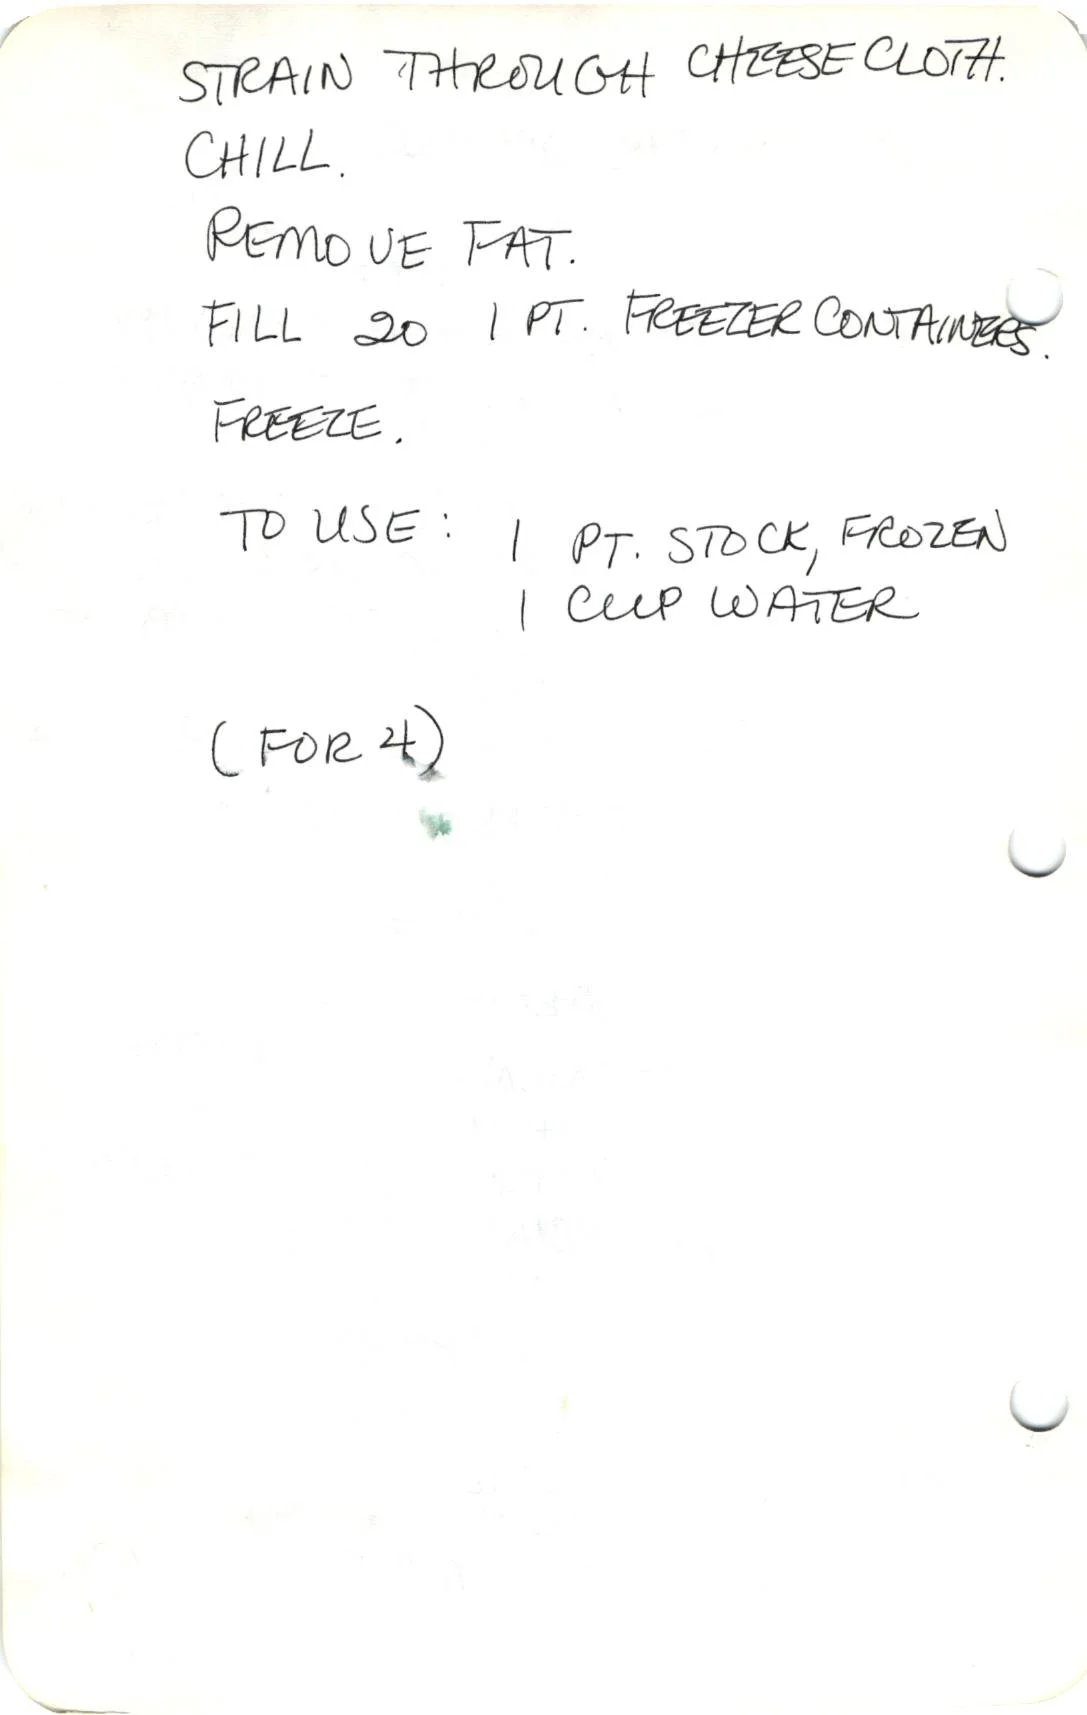 STRAIN THROUGH CHEESECLOTH.
CHILL.
REMOVE FAT.
FILL 20 1 PT. FREEZER CONTAINERS.
FREEZE.
TO USE: 1 PT. STOCK, FROZEN
1 CUP WATER
(FOR 4)